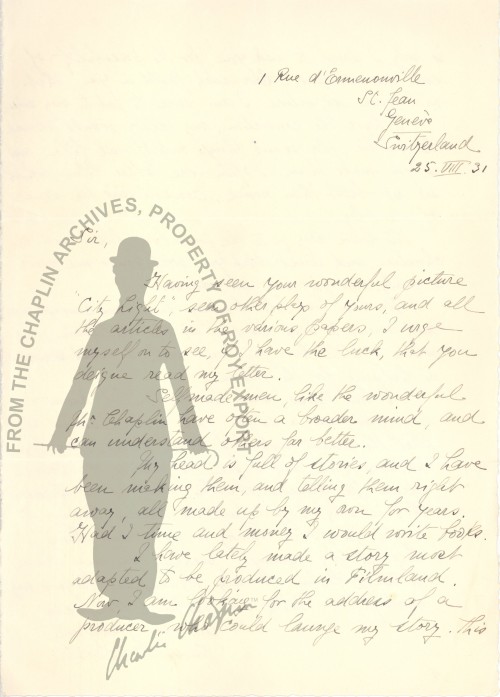 1 Rue d'Ermenonville
St. Jean
Genève
Switzerland
25. VIII 31
FROM THE CHAPLIN ARCHIVES, PROPERTY OF ROY EXPORT
Sir,
Having seen your wonderful picture
"City Light", seen other plays of yours, and all
the articles in the various papers, I urge
myself on to see, if I have the luck, that you
deigne read my letter.
Self made men, like the wonderful
Mr Chaplin have often a broader mind, and
can understand others far better.
My head is full of stories, and I have
been making them, and telling them right
away, all made up by my own for years.
Had I time and money I would write books.
I have lately made a story most
adapted to be produced in Filmland.
Now, I am looking for the address of a
producer, who could launge my story. This
Charlie Chaplin